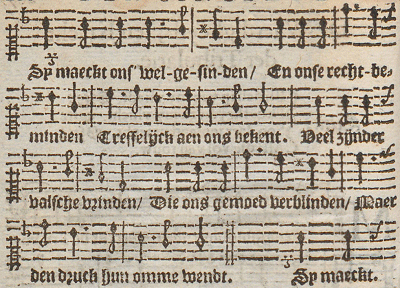 Sy maeckt ons' wel-ge-sin-den/ En onse recht-be-
minden Treffelijck aen ons bekent. Veel zijnder
valsche vrinden/ Die ons gemoed verblinden/ Maer
den druck hun omme wendt. Sy maeckt.